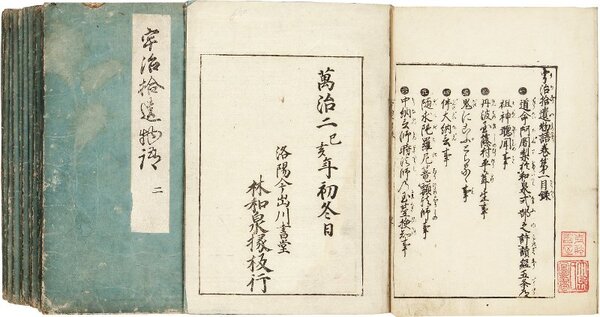 宇治拾遺物語 二
萬治二己亥年初冬日
洛陽今出川書堂
林和泉掾板行
宇治拾遺物語巻第一目録
一 道命阿闍梨於和泉式部之許讀經五条道
祖神聴聞事
二 丹波国篠村平茸生事
三 鬼にこふとらるゝ事
四 伴大納言事
五 随求陀羅尼籠額法師事
六 中納言師時法師ノ玉茎検知事